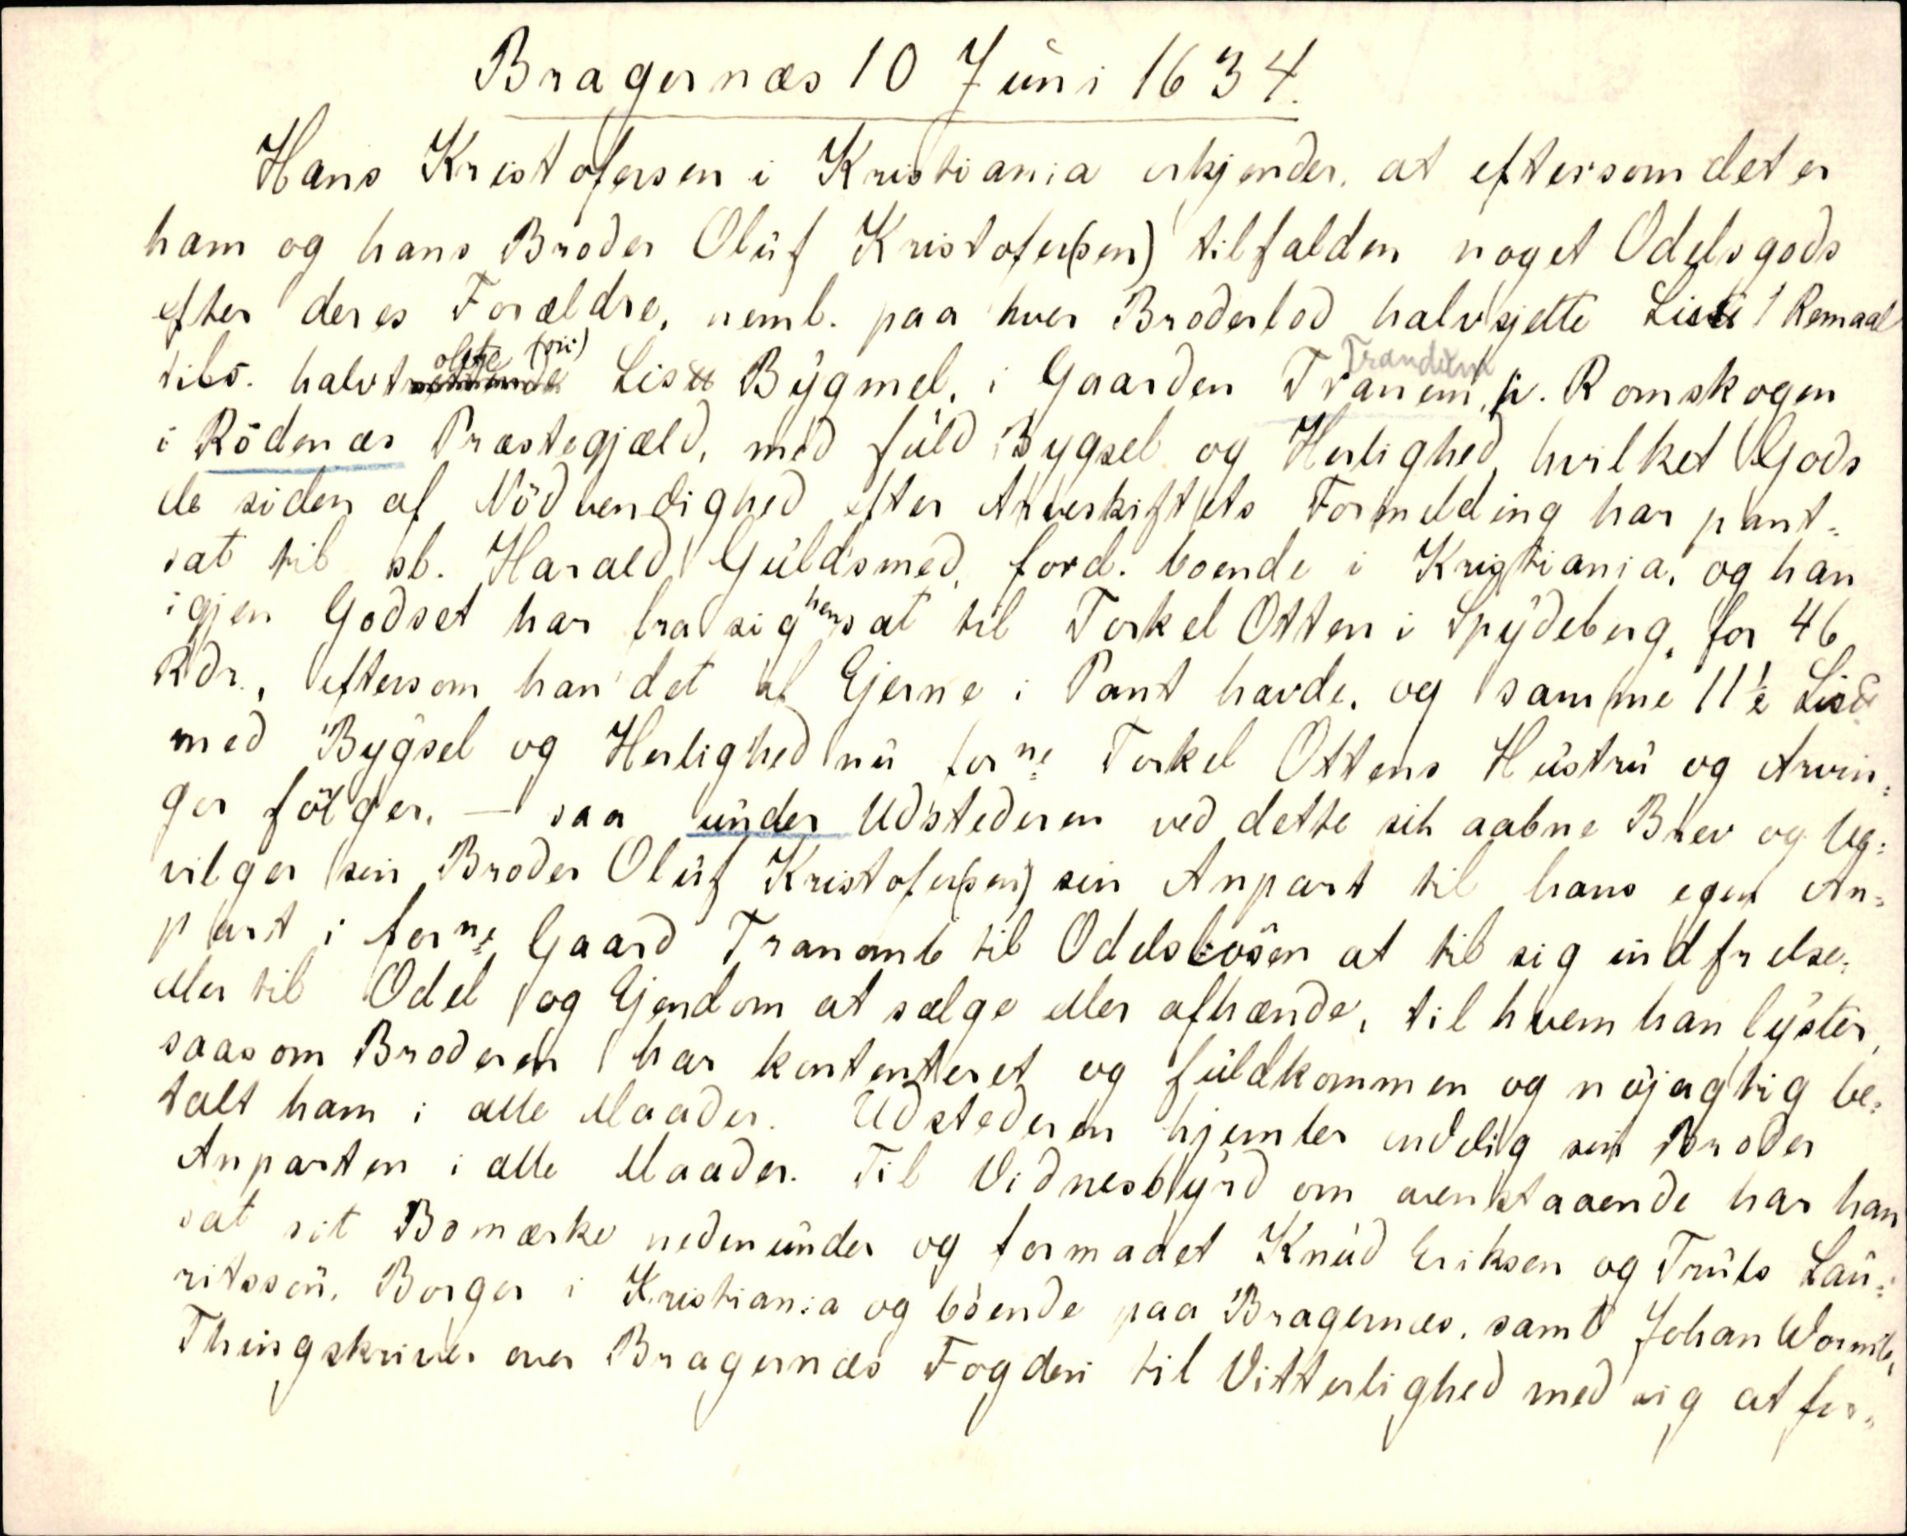 Bragernæs 10 Juni 1634.
Hans Kristofersen i Kristiania erkjender, at eftersom det er
ham og hans Broder Oluf Kristofer(sen) tilfalden noget Odelsgods
efter deres Forældre, neml. paa hver Broderlod halvsjette Lis℔ 1 Remaal
tils. halvtolfte (sic) Lis℔ Bygmel, i Gaarden Tranem, Trandem p. Romskogen
i Rödenæs Præstegjæld, med fuld Bygsel og Herlighed, hvilket Gods
de siden af Nödvendighed efter Arveskiftets Formelding har pant-
sat til sl. Harald Guldsmed, ford. boende i Kristiania, og han
igjen Godset har fra sig hensat til Torkel Otten i Spydeberg, for 46
Rdr., eftersom han det af Ejerne i Pant havde, og samme 11½ Lis℔
med Bygsel og Herlighed nu forne Torkel Ottens Hustru og Arvin-
ger fölger, — saa under Udstederen ved dette sit aabne Brev og be-
vilger sin Broder Oluf Kristofer(sen) sin Anpart til hans egen An-
part i forne Gaard Tranomb til Odelslösen at til sig indfrelse,
eller til Odel og Ejendom at sælge eller afhænde, til hvem han lyster,
saasom Broderen har kontenteret og fuldkommen og nöjagtig be-
talt ham i alle Maader. Udstederen hjemler endelig sin Broder
Anparten i alle Maader. Til Vidnesbyrd om ovenstaaende har han
sat sit Bomærke nedenunder og formaaet Knud Eriksen og Truls Lau-
ritssön, Borger i Kristiania og boende paa Bragernæs, samt Johan Wormb,
Thingskriver over Bragernæs Fogderi til Vitterlighed med sig at for-